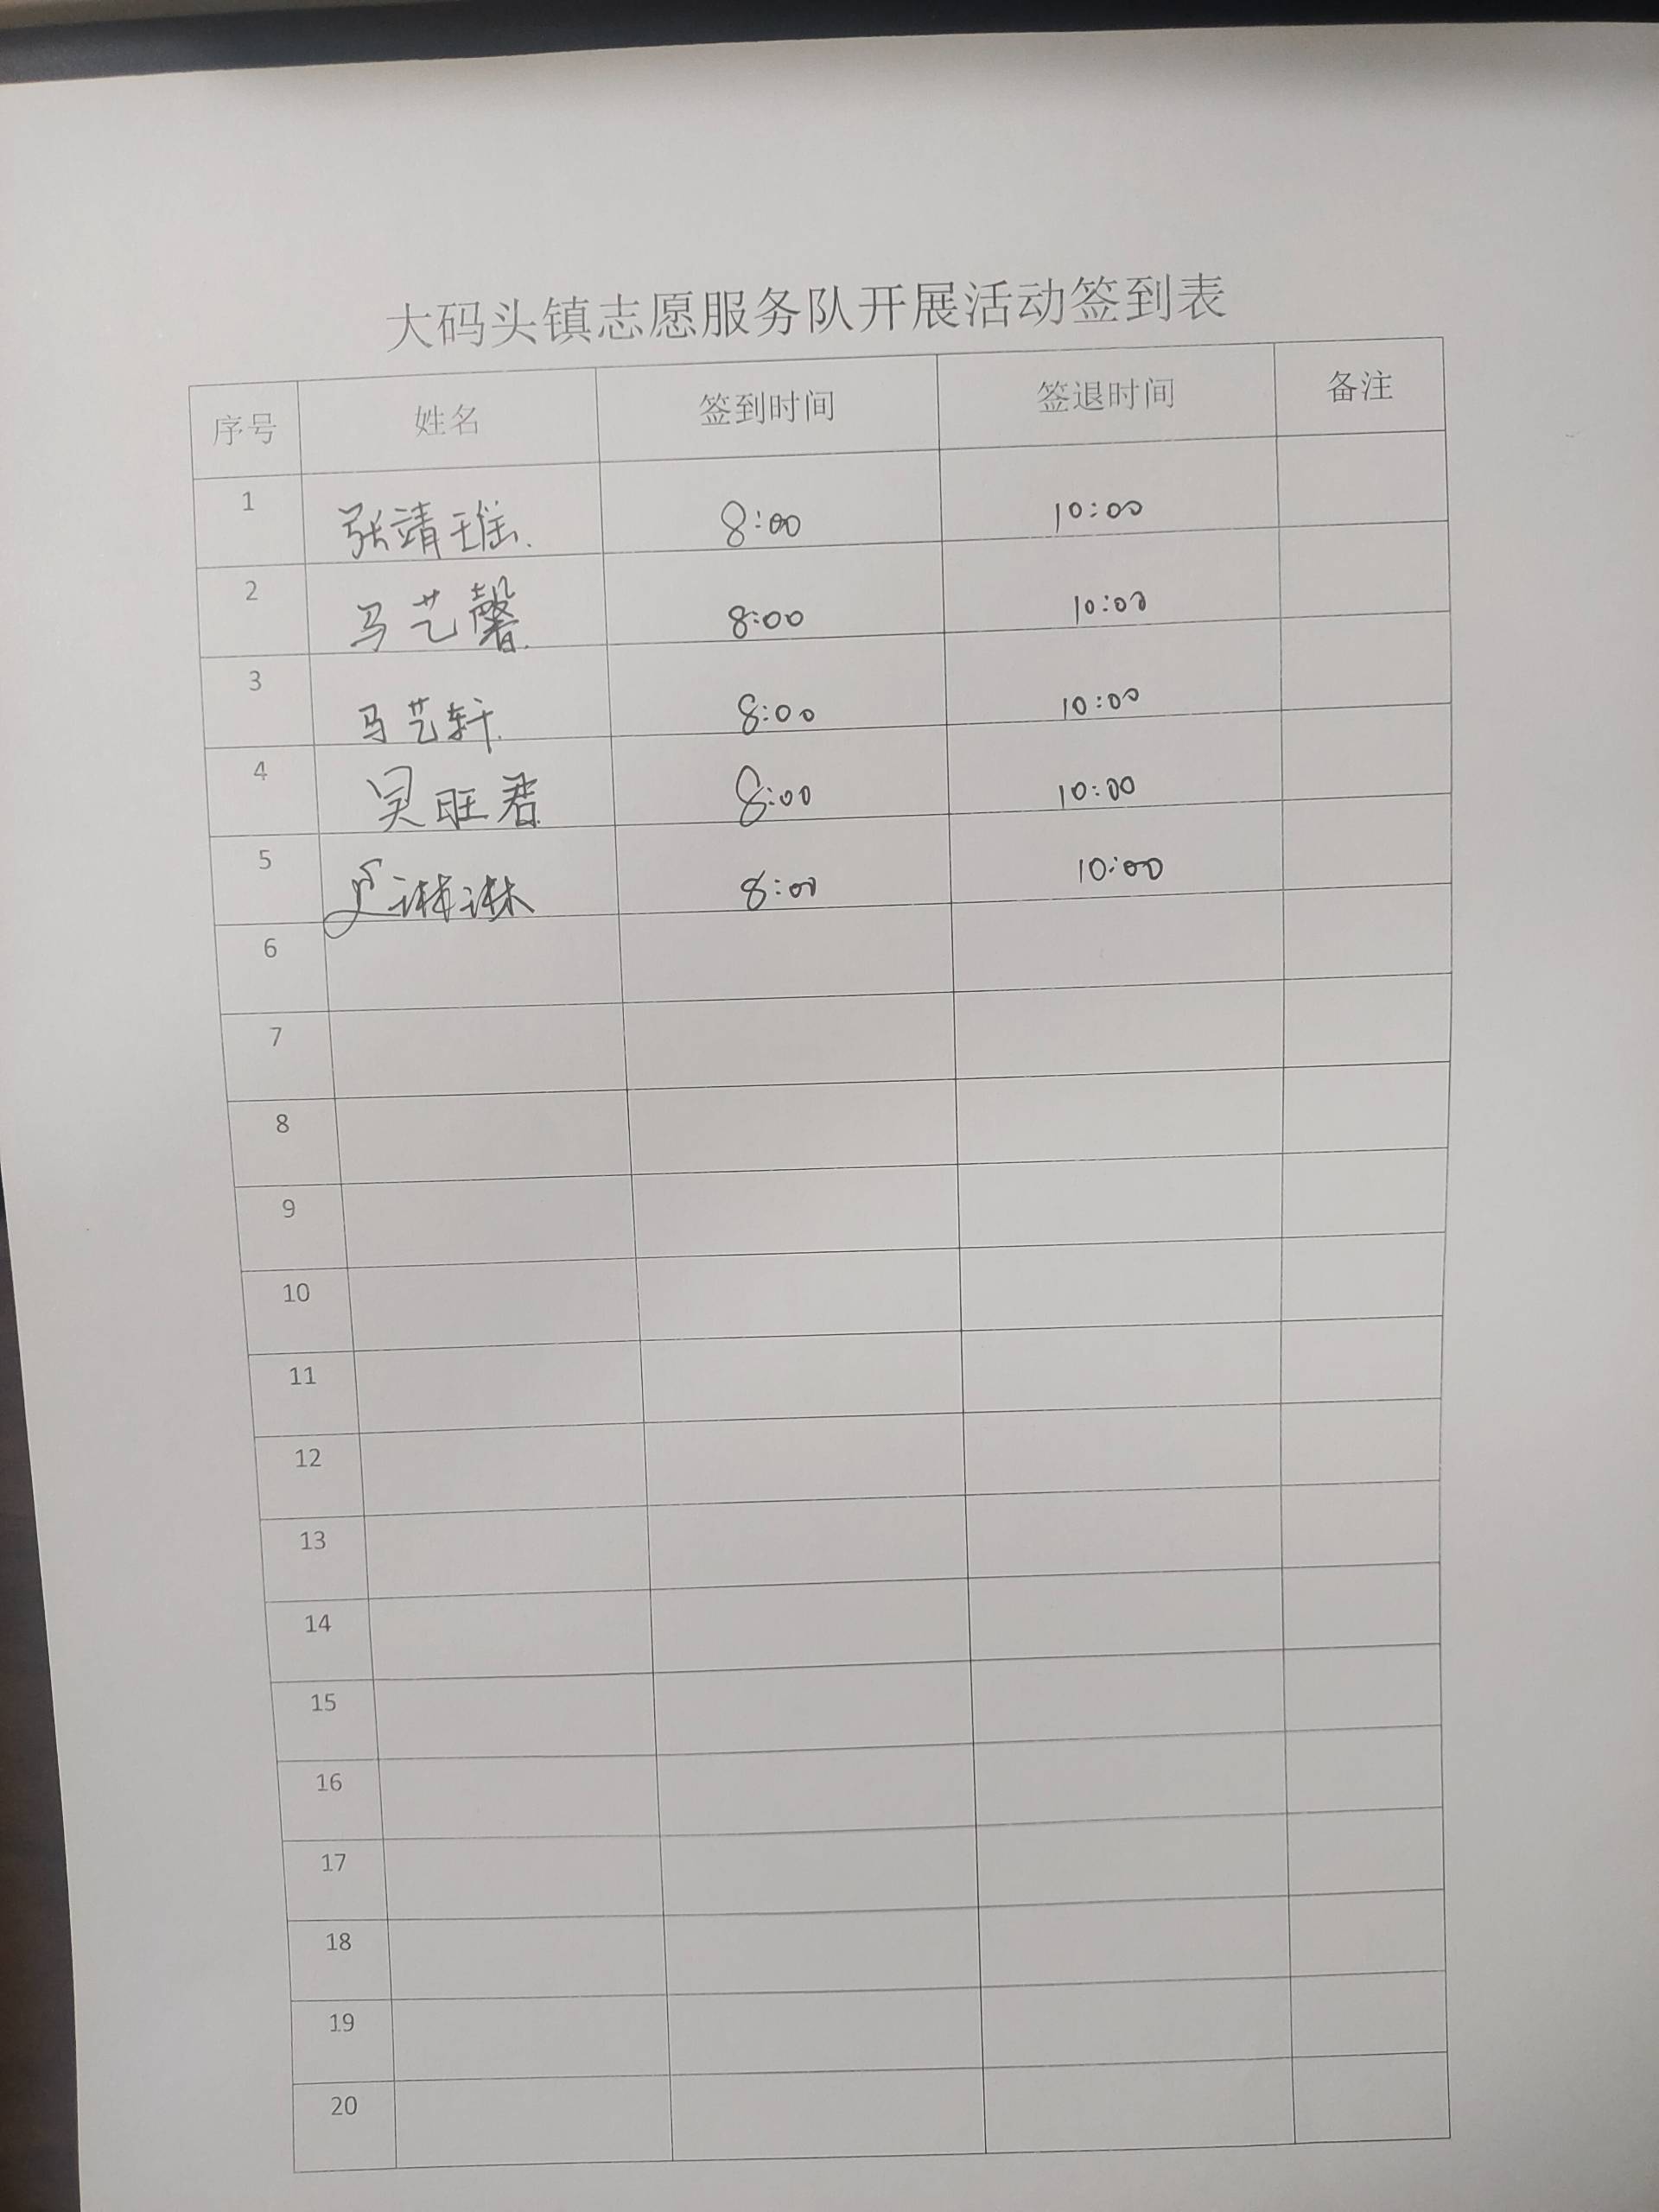 大码头镇志愿服务队开展活动签到表
序号 姓名 签到时间 签退时间 备注
1 张靖瑶 8:00 10:00
2 马艺馨 8:00 10:00
3 马艺轩 8:00 10:00
4 吴旺君 8:00 10:00
5 8:00 10:00
6
7
8
9
10
11
12
13
14
15
16
17
18
19
20